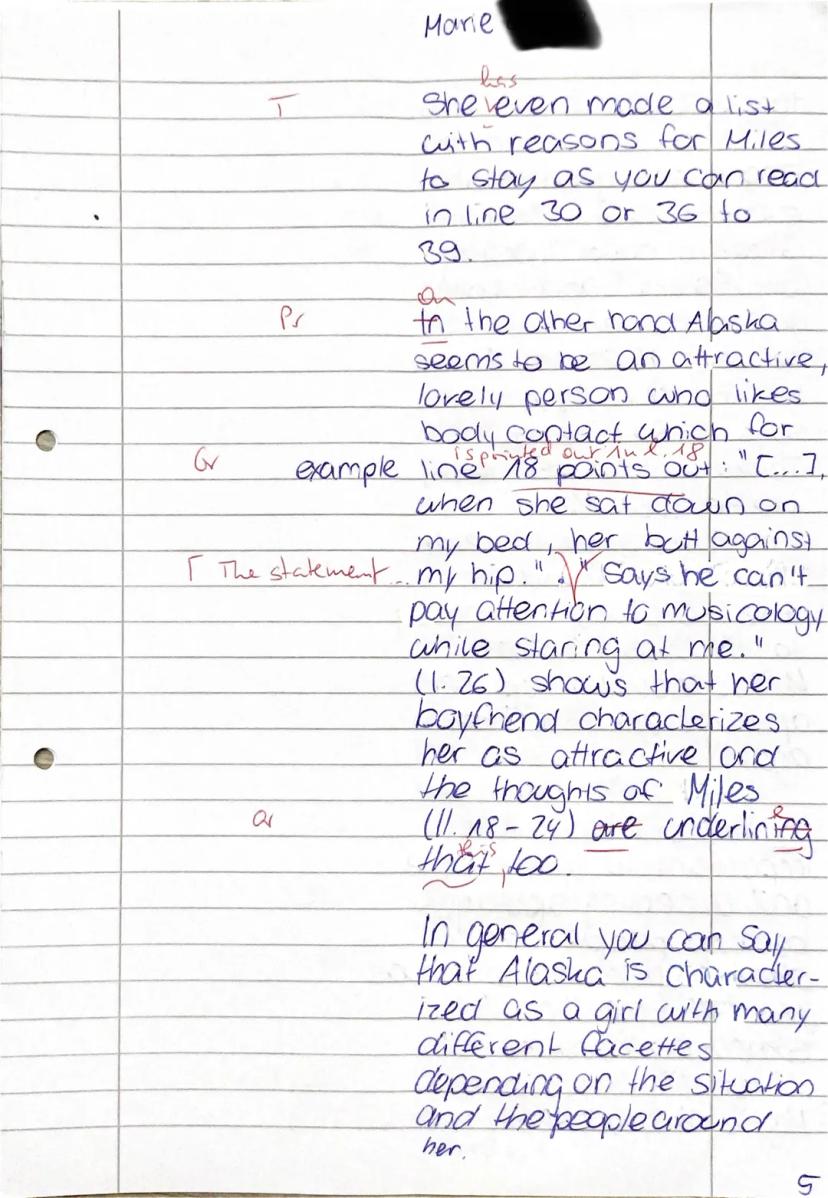 Marie
has
T She even made a list
with reasons for Miles
to stay as you can read
in line 30 or 36 to
39.
On
Pr In the other hand Alaska
seems to be an attractive,
lovely person who likes
body contact which for
is pointed out in l. 18
Gr example line 18 points out: "[...],
when she sat down on
my bed, her butt against
Γ The statement... my hip.". "Says he can't
pay attention to musicology
while staring at me."
(l. 26) shows that her
boyfriend characterizes
her as attractive and
the thoughts of Miles
e
Gr (ll. 18-24) are underlining
this
that, too.
In general you can say
that Alaska is character-
ized as a girl with many
different facettes
depending on the situation
and the people around
her.
5